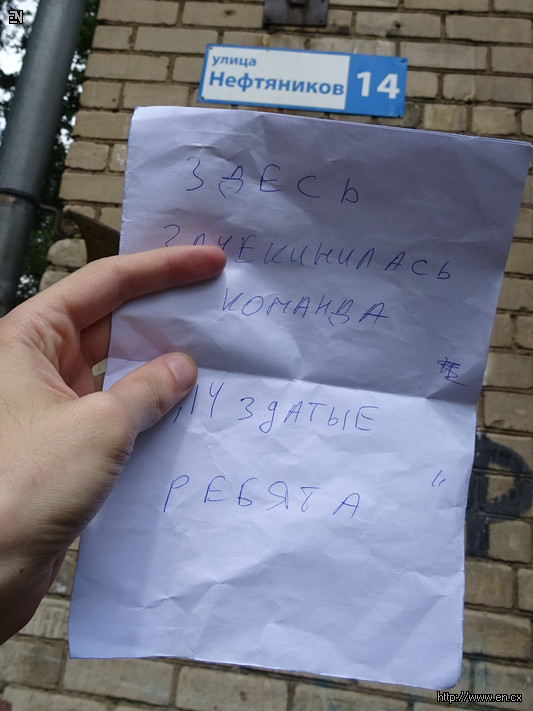 EN
улица
Нефтяников 14
ЗДЕСЬ
ЗАЧЕКИНИЛАСЬ
КОМАНДА
ЗДАТЫЕ
РЕБЯТА "
http://www.en.cx